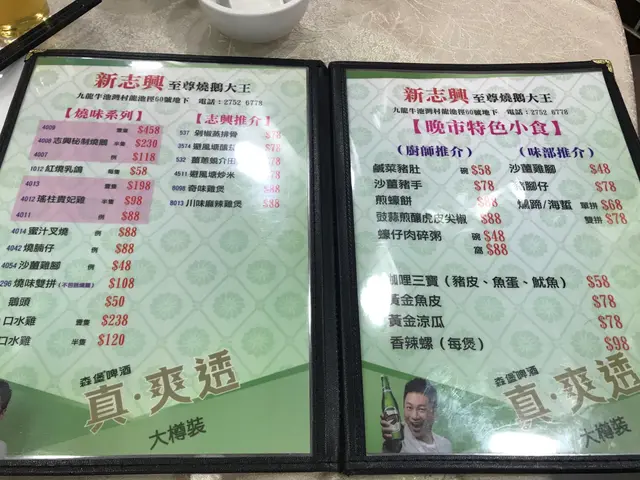 新志興 至尊燒鵝大王
九龍牛池灣村龍池徑60號地下 電話：2752 6778
【燒味系列】
4009 壹隻 $458
4008 志興秘制燒鵝 半隻 $230
4007 例 $118
1012 紅燒乳鴿 每隻 $58
4013 壹隻 $198
4012 瑤柱貴妃雞 半隻 $98
4011 例 $88
4014 蜜汁叉燒 例 $88
4042 燒腩仔 例 $88
4054 沙薑雞腳 例 $48
296 燒味雙拼 (不包括燒鵝) $108
鵝頭 $50
口水雞 壹隻 $238
口水雞 半隻 $120
【志興推介】
537 剁椒蒸排骨 $78
3574 避風塘 $78
532 薑蔥 $88
4511 避風塘炒米 $78
8098 奇味雞煲 $88
8013 川味麻辣雞煲 $88
森堡啤酒
真·爽透
大樽裝
新志興 至尊燒鵝大王
九龍牛池灣村龍池徑60號地下 電話：2752 6778
【晚市特色小食】
(廚師推介)
鹹菜豬肚 碗 $58
沙薑豬手 $78
煎蠔餅 $88
豉蒜煎釀虎皮尖椒 $88
蠔仔肉碎粥 碗 $48
窩 $88
(味部推介)
沙薑雞腳 $48
腳仔 $78
燻蹄/海蜇 單拼 $68
雙拼 $78
咖哩三寶（豬皮、魚蛋、魷魚） $58
黃金魚皮 $78
黃金涼瓜 $78
香辣螺（每煲） $98
森堡啤酒
真·爽透
大樽裝